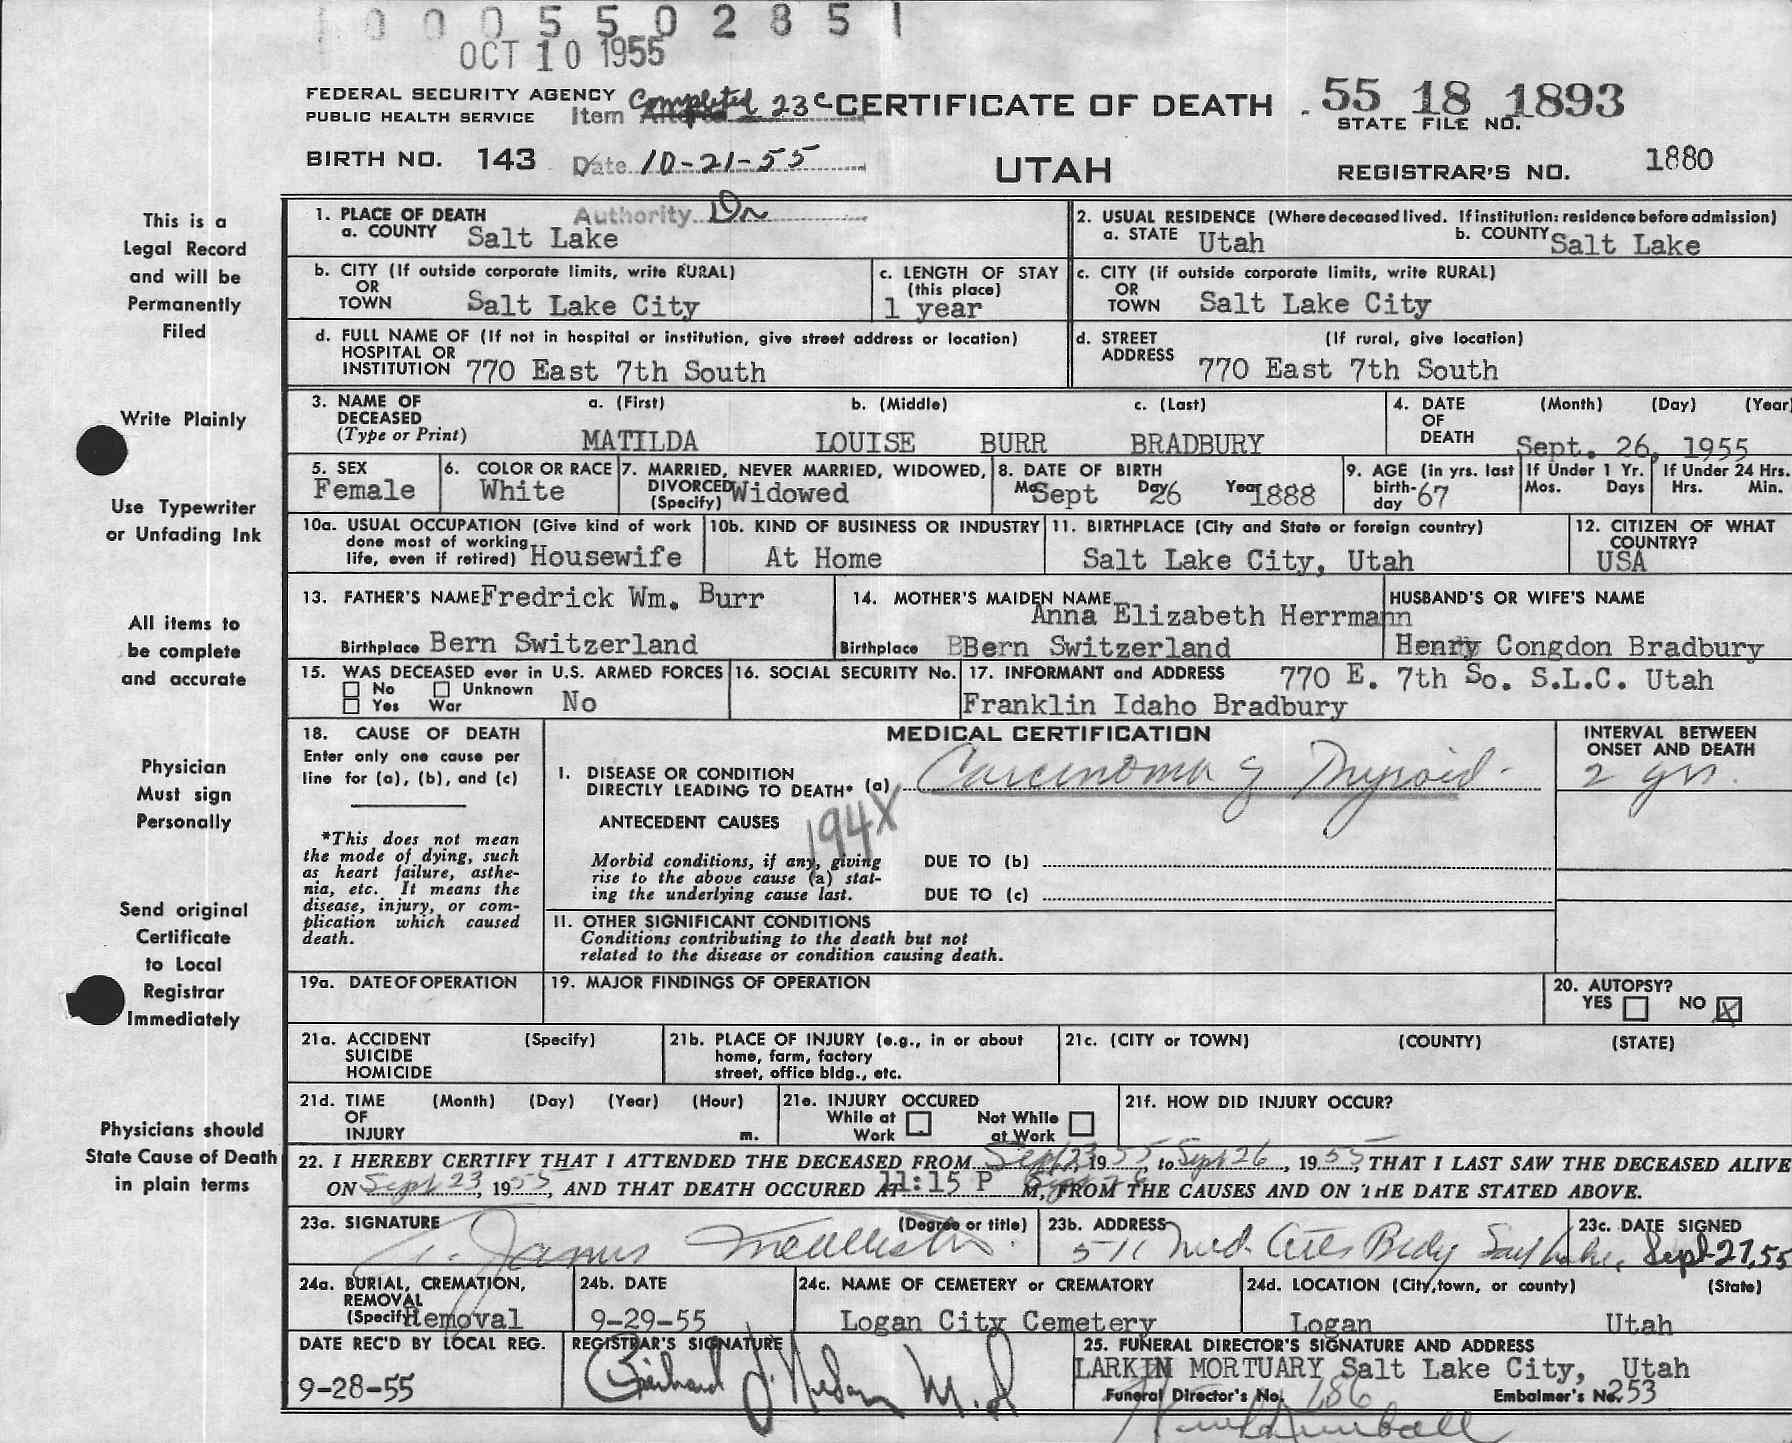 0 0 0 5 5 0 2 8 5 1
OCT 10 1955
FEDERAL SECURITY AGENCY
PUBLIC HEALTH SERVICE
Item Completed 23c
CERTIFICATE OF DEATH
55 18 1893
STATE FILE NO.
BIRTH NO. 143
Date 10-21-55
UTAH
REGISTRAR'S NO. 1880
This is a
Legal Record
and will be
Permanently
Filed
Write Plainly
Use Typewriter
or Unfading Ink
All items to
be complete
and accurate
Physician
Must sign
Personally
Send original
Certificate
to Local
Registrar
Immediately
Physicians should
State Cause of Death
in plain terms
1. PLACE OF DEATH
Authority Dr
a. COUNTY Salt Lake
2. USUAL RESIDENCE (Where deceased lived. If institution: residence before admission)
a. STATE Utah b. COUNTY Salt Lake
b. CITY (If outside corporate limits, write RURAL)
OR
TOWN Salt Lake City
c. LENGTH OF STAY
(this place)
1 year
c. CITY (if outside corporate limits, write RURAL)
OR
TOWN Salt Lake City
d. FULL NAME OF (If not in hospital or institution, give street address or location)
HOSPITAL OR
INSTITUTION 770 East 7th South
d. STREET (If rural, give location)
ADDRESS
770 East 7th South
3. NAME OF a. (First) b. (Middle) c. (Last)
DECEASED
(Type or Print) MATILDA LOUISE BURR BRADBURY
4. DATE (Month) (Day) (Year)
OF
DEATH Sept. 26, 1955
5. SEX
Female
6. COLOR OR RACE
White
7. MARRIED, NEVER MARRIED, WIDOWED,
DIVORCED
(Specify) Widowed
8. DATE OF BIRTH
Mo. Sept Day 26 Year 1888
9. AGE (in yrs. last
birth-
day 67
If Under 1 Yr.
Mos. Days
If Under 24 Hrs.
Hrs. Min.
10a. USUAL OCCUPATION (Give kind of work
done most of working
life, even if retired) Housewife
10b. KIND OF BUSINESS OR INDUSTRY
At Home
11. BIRTHPLACE (City and State or foreign country)
Salt Lake City, Utah
12. CITIZEN OF WHAT
COUNTRY?
USA
13. FATHER'S NAME Fredrick Wm. Burr
Birthplace Bern Switzerland
14. MOTHER'S MAIDEN NAME
Anna Elizabeth Herrmann
Birthplace BBern Switzerland
HUSBAND'S OR WIFE'S NAME
Henry Congdon Bradbury
15. WAS DECEASED ever in U.S. ARMED FORCES
No Unknown
Yes War No
16. SOCIAL SECURITY No.
17. INFORMANT and ADDRESS 770 E. 7th So. S.L.C. Utah
Franklin Idaho Bradbury
18. CAUSE OF DEATH
Enter only one cause per
line for (a), (b), and (c)
*This does not mean
the mode of dying, such
as heart failure, asthe-
nia, etc. It means the
disease, injury, or com-
plication which caused
death.
MEDICAL CERTIFICATION
I. DISEASE OR CONDITION
DIRECTLY LEADING TO DEATH* (a) Carcinoma of Thyroid
194X
ANTECEDENT CAUSES
Morbid conditions, if any, giving
rise to the above cause (a) stat-
ing the underlying cause last.
DUE TO (b)
DUE TO (c)
II. OTHER SIGNIFICANT CONDITIONS
Conditions contributing to the death but not
related to the disease or condition causing death.
INTERVAL BETWEEN
ONSET AND DEATH
2 yrs.
19a. DATE OF OPERATION
19. MAJOR FINDINGS OF OPERATION
20. AUTOPSY?
YES NO X
21a. ACCIDENT (Specify)
SUICIDE
HOMICIDE
21b. PLACE OF INJURY (e.g., in or about
home, farm, factory
street, office bldg., etc.
21c. (CITY or TOWN) (COUNTY) (STATE)
21d. TIME (Month) (Day) (Year) (Hour)
OF
INJURY m.
21e. INJURY OCCURED
While at Not While
Work at Work
21f. HOW DID INJURY OCCUR?
22. I HEREBY CERTIFY THAT I ATTENDED THE DECEASED FROM Sept 23, 1955, to Sept 26, 1955, THAT I LAST SAW THE DECEASED ALIVE
ON Sept 23, 1955, AND THAT DEATH OCCURED AT 11:15 P M, FROM THE CAUSES AND ON THE DATE STATED ABOVE.
23a. SIGNATURE (Degree or title)
James
23b. ADDRESS
511 Med. Arts Bldg Salt Lake
23c. DATE SIGNED
Sept 27, 55
24a. BURIAL, CREMATION,
REMOVAL
(Specify) Removal
24b. DATE
9-29-55
24c. NAME OF CEMETERY or CREMATORY
Logan City Cemetery
24d. LOCATION (City, town, or county) (State)
Logan Utah
DATE REC'D BY LOCAL REG.
9-28-55
REGISTRAR'S SIGNATURE
M.D
25. FUNERAL DIRECTOR'S SIGNATURE AND ADDRESS
LARKIN MORTUARY Salt Lake City, Utah
Funeral Director's No. 186 Embalmer's No. 253